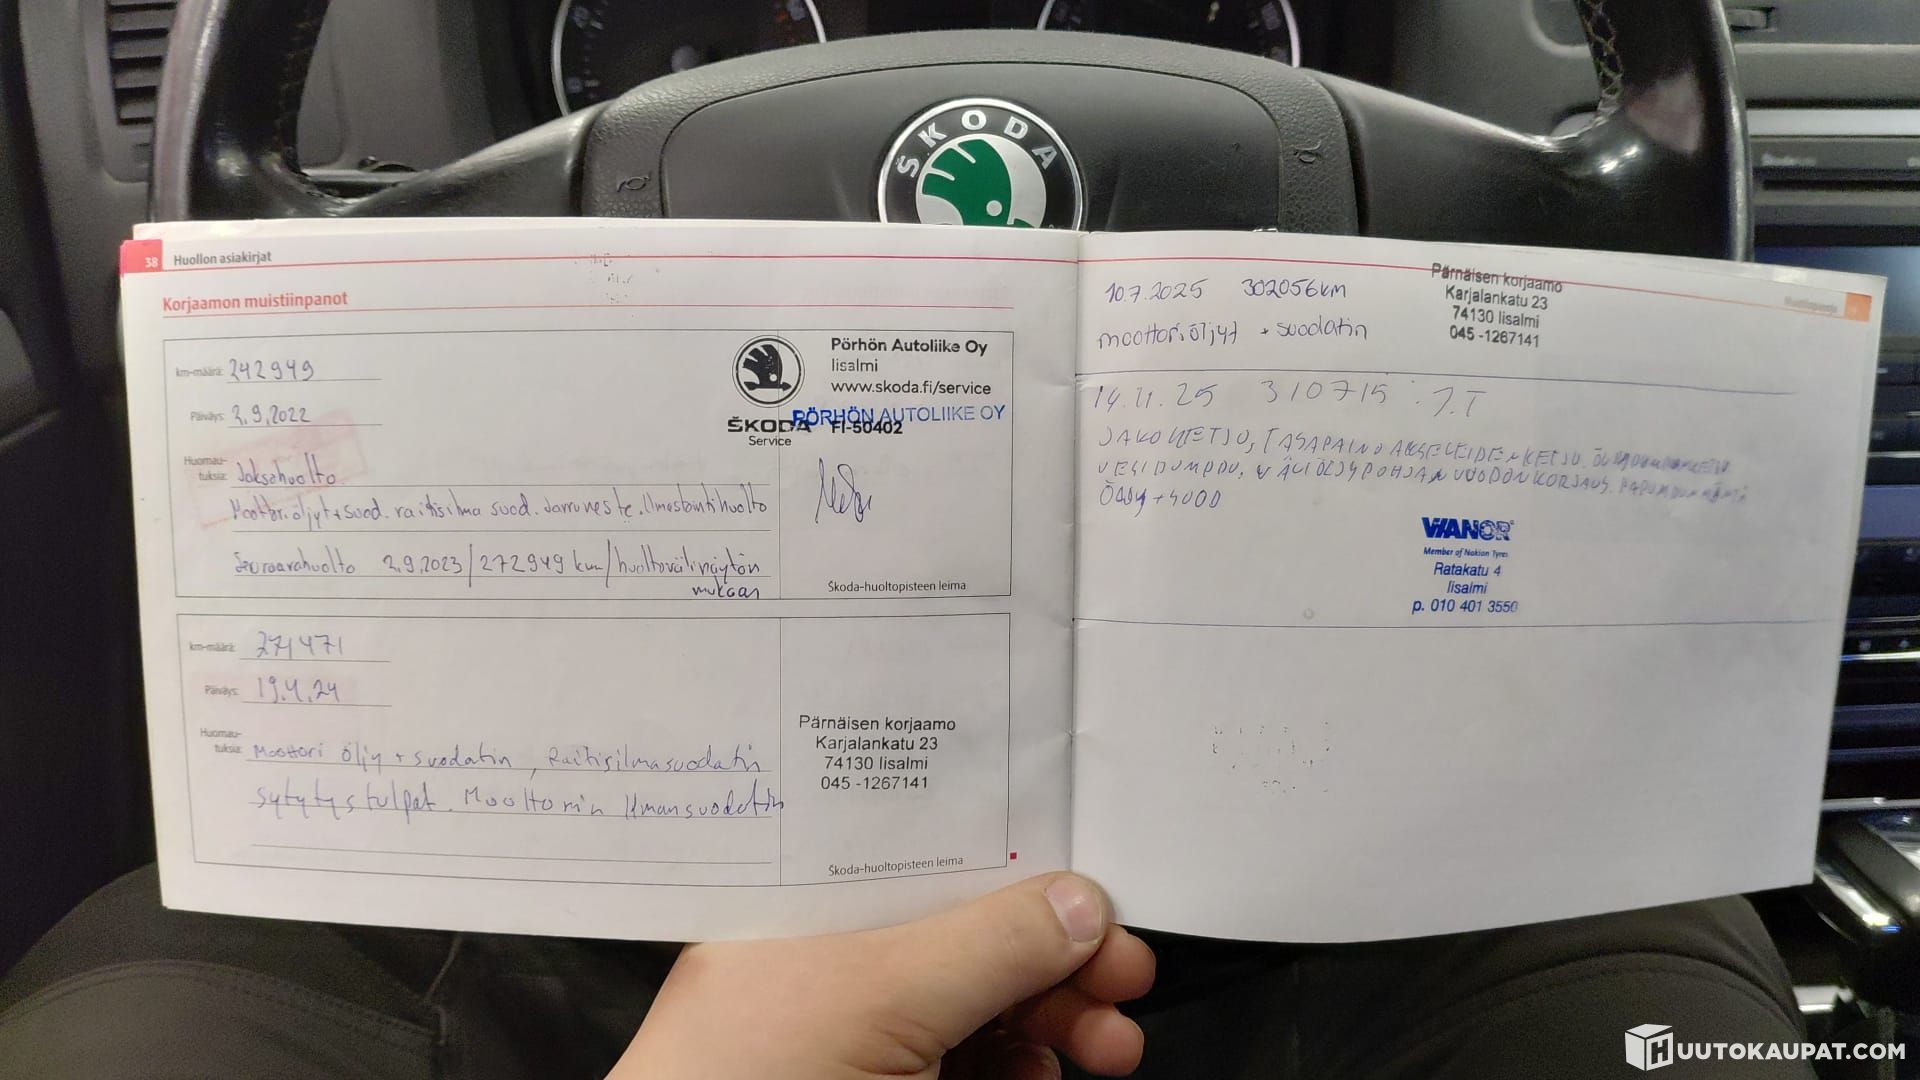 ŠKODA
38 Huollon asiakirjat
Korjaamon muistiinpanot
km-määrä: 242949
Päiväys: 2.9.2022
Huomau-
tuksia: Jaksohuolto
Moottoriöljyt + suod. raitisilma suod. Jarruneste. Ilmastointihuolto
Seuraavahuolto 2.9.2023 / 272949 km / huoltovälinäytön
mukaan
Pörhön Autoliike Oy
Iisalmi
www.skoda.fi/service
PÖRHÖN AUTOLIIKE OY
ŠKODA FI-50402
Service
Škoda-huoltopisteen leima
km-määrä: 271471
Päiväys: 19.4.24
Huomau-
tuksia: Moottori öljy + suodatin, Raitisilmasuodatin
sytytystulpat. Moottorin Ilmansuodatin
Pärnäisen korjaamo
Karjalankatu 23
74130 Iisalmi
045 -1267141
Škoda-huoltopisteen leima
10.7.2025 302056km
moottoriöljyt + suodatin
Pärnäisen korjaamo
Karjalankatu 23
74130 Iisalmi
045 -1267141
14.11.25 310715 J.T
JAKOKETJU, TASAPAINOAKSELEIDEN KETJU,
VESIPUMPPU, VÄLIÖLJYPOHJAN VUODON KORJAUS,
ÖLJY + SUOD
VIANOR
Member of Nokian Tyres
Ratakatu 4
Iisalmi
p. 010 401 3550
HUUTOKAUPAT.COM